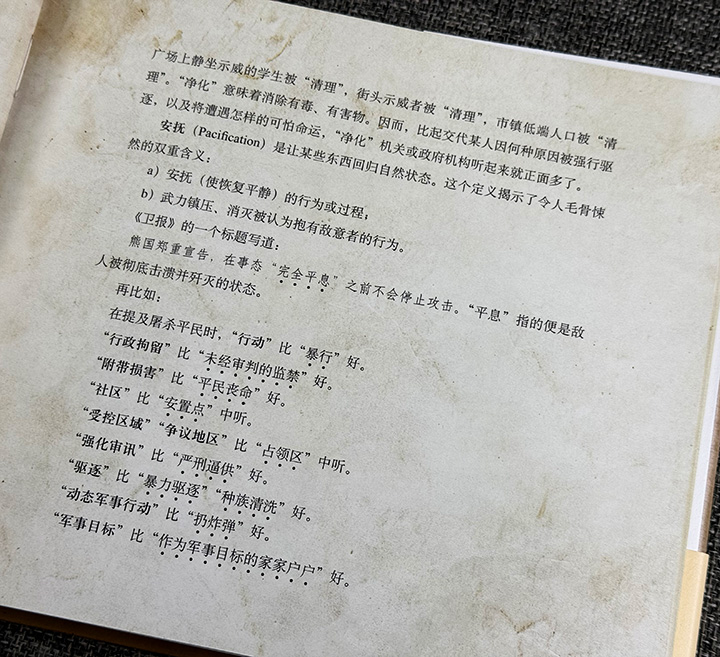 广场上静坐示威的学生被“清理”，街头示威者被“清理”，市镇低端人口被“清
理”。“净化”意味着消除有毒、有害物。因而，比起交代某人因何种原因被强行驱
逐，以及将遭遇怎样的可怕命运，“净化”机关或政府机构听起来就正面多了。
安抚（Pacification）是让某些东西回归自然状态。这个定义揭示了令人毛骨悚
然的双重含义：
a）安抚（使恢复平静）的行为或过程；
b）武力镇压、消灭被认为抱有敌意者的行为。
《卫报》的一个标题写道：
熊国郑重宣告，在事态“完全平息”之前不会停止攻击。“平息”指的便是敌
人被彻底击溃并歼灭的状态。
再比如：
在提及屠杀平民时，“行动”比“暴行”好。
“行政拘留”比“未经审判的监禁”好。
“附带损害”比“平民丧命”好。
“社区”比“安置点”中听。
“受控区域”“争议地区”比“占领区”中听。
“强化审讯”比“严刑逼供”好。
“驱逐”比“暴力驱逐”“种族清洗”好。
“动态军事行动”比“扔炸弹”好。
“军事目标”比“作为军事目标的家家户户”好。